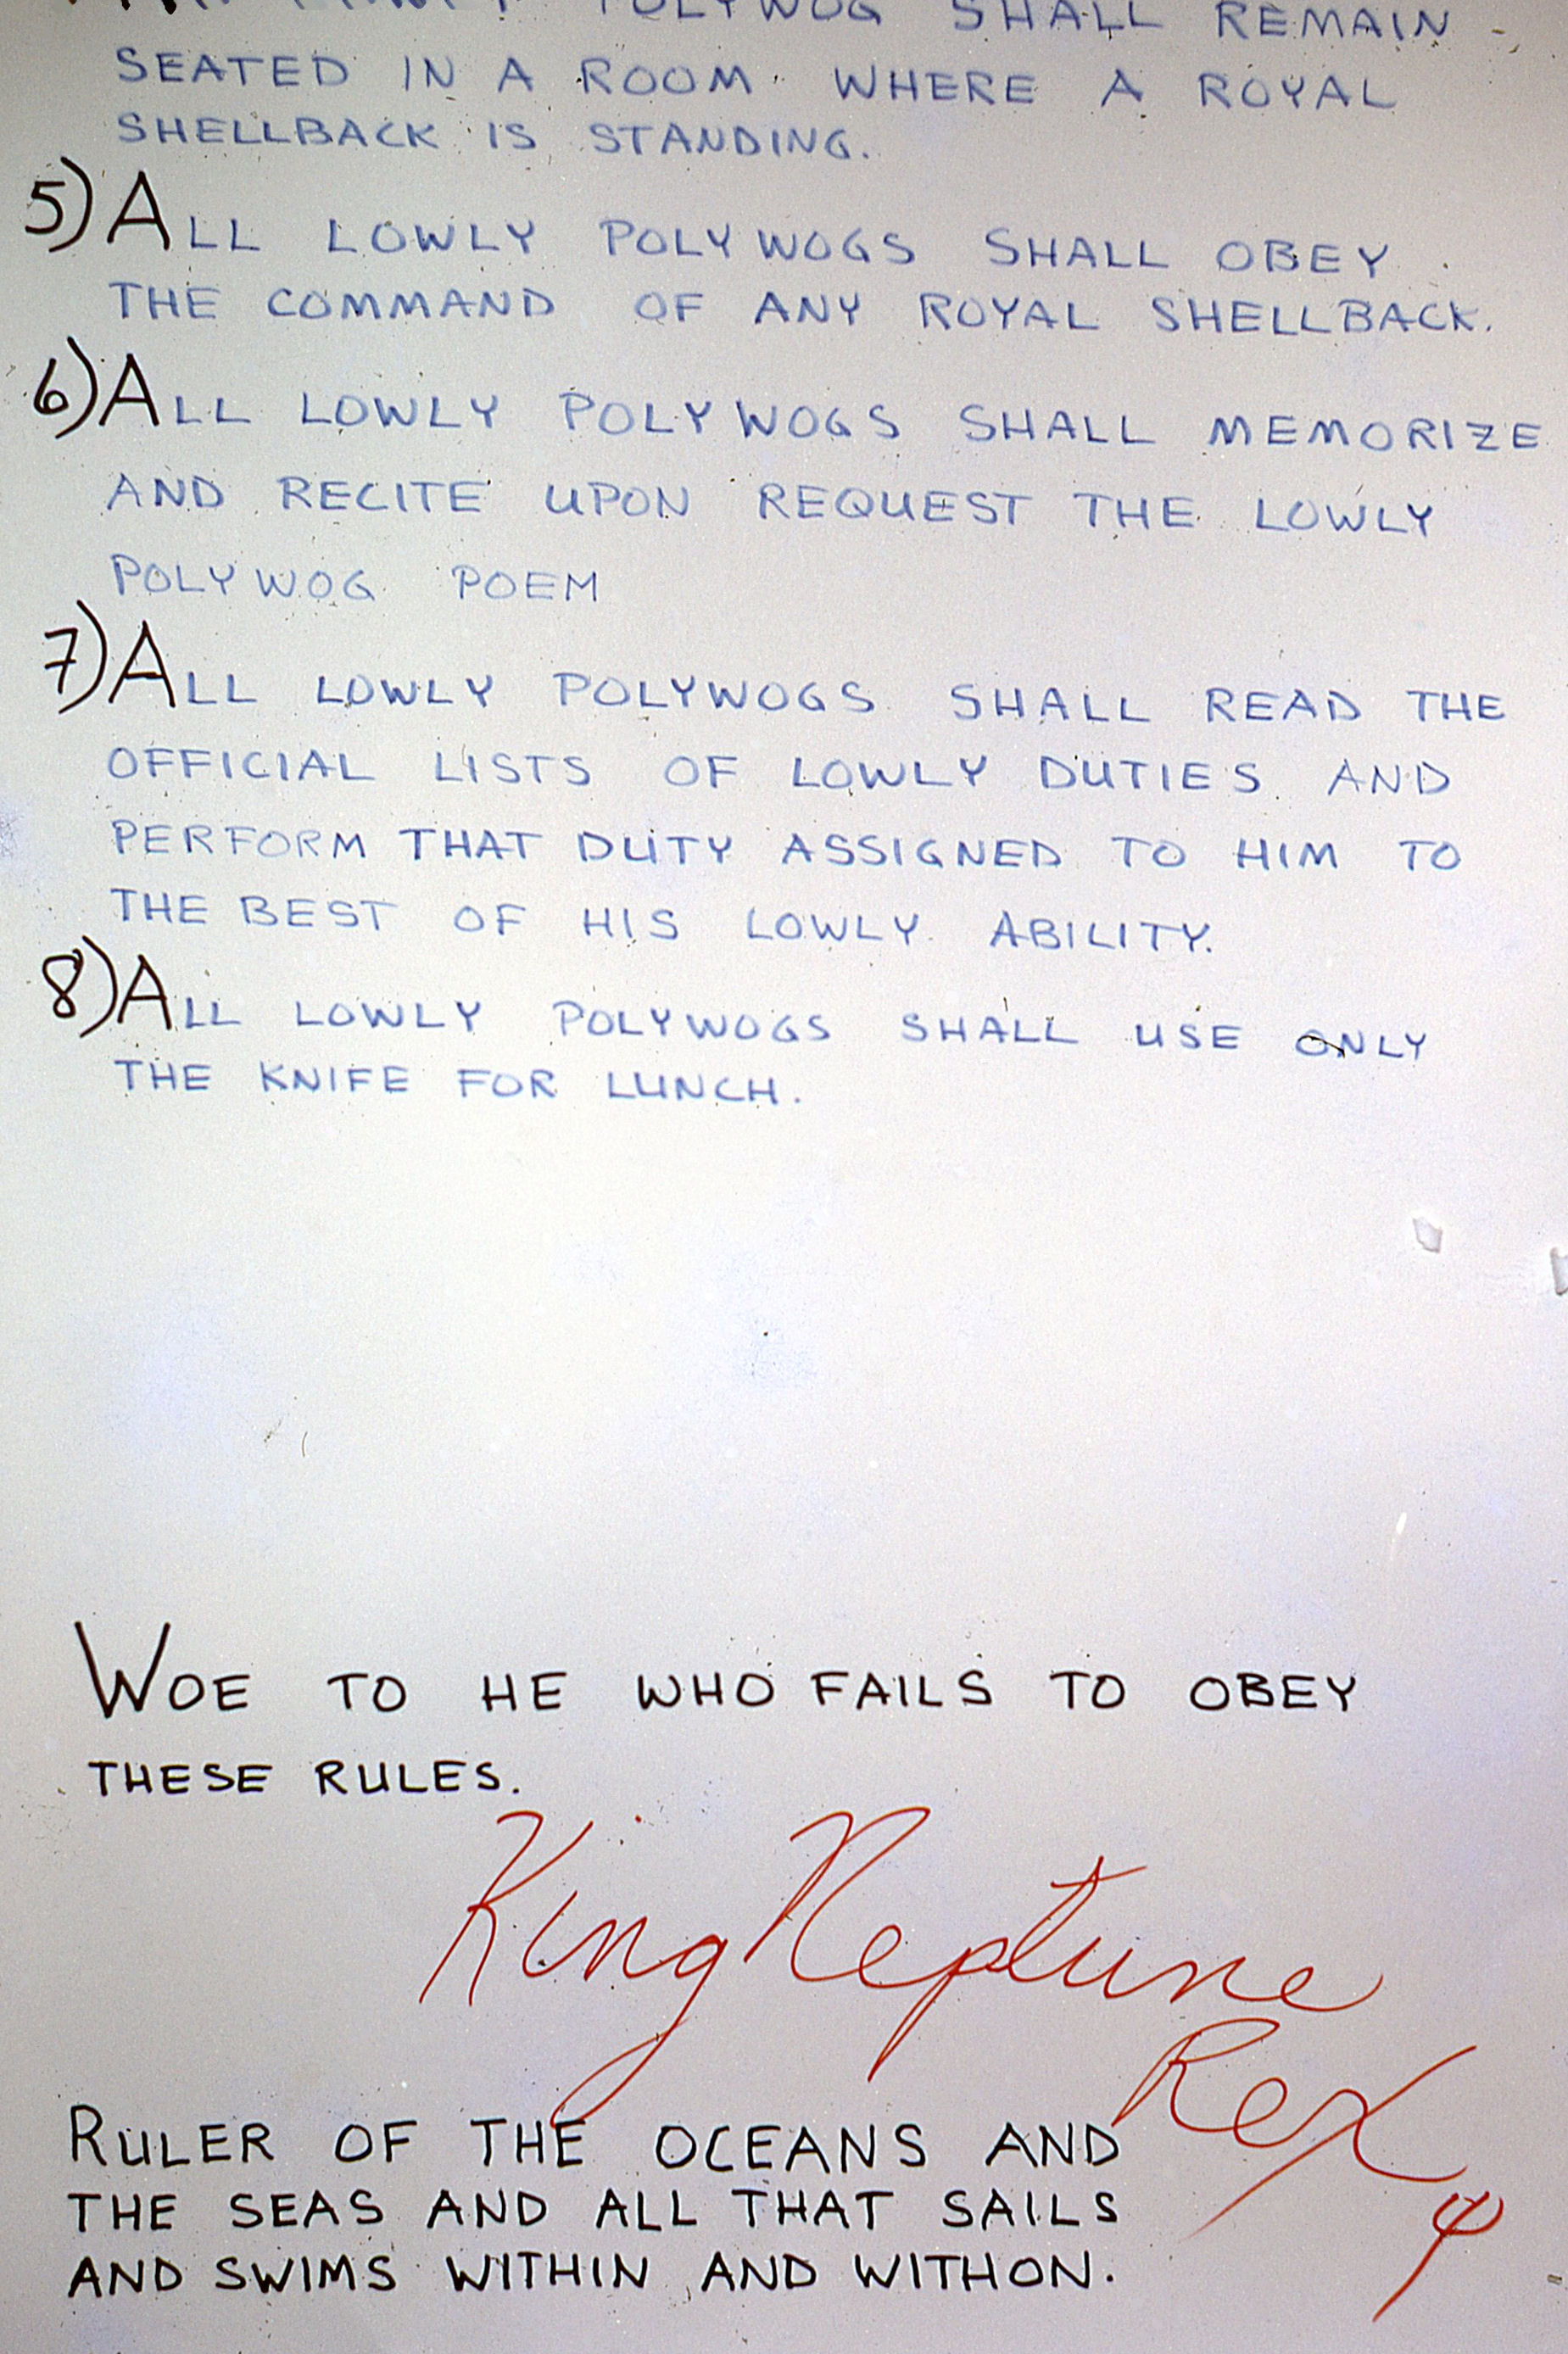 POLYWOG SHALL REMAIN
SEATED IN A ROOM WHERE A ROYAL
SHELLBACK IS STANDING.
5) ALL LOWLY POLYWOGS SHALL OBEY
THE COMMAND OF ANY ROYAL SHELLBACK.
6) ALL LOWLY POLYWOGS SHALL MEMORIZE
AND RECITE UPON REQUEST THE LOWLY
POLYWOG POEM
7) ALL LOWLY POLYWOGS SHALL READ THE
OFFICIAL LISTS OF LOWLY DUTIES AND
PERFORM THAT DUTY ASSIGNED TO HIM TO
THE BEST OF HIS LOWLY ABILITY.
8) ALL LOWLY POLYWOGS SHALL USE ONLY
THE KNIFE FOR LUNCH.
WOE TO HE WHO FAILS TO OBEY
THESE RULES.
King Neptune
Rex
RULER OF THE OCEANS AND
THE SEAS AND ALL THAT SAILS
AND SWIMS WITHIN AND WITHON.